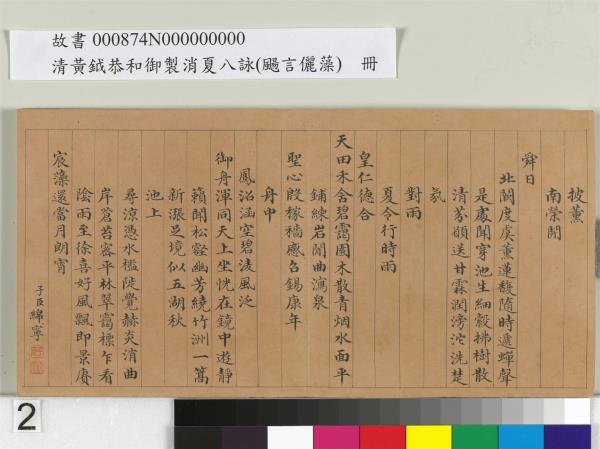 故書 000874N000000000
清黃鉞恭和御製消夏八詠(颺言儷藻)　冊
披薰
南榮開
舜日
北閣度虞薰蓮馥隨時遞蟬聲
是處聞穿池生細縠拂樹散
清芬願送甘霖潤滂沱洗楚
氛
對雨
夏令行時雨
皇仁德合
天田禾含碧靄園木散青烟水面平
鋪練岩間曲瀉泉
聖心殷稼穡應召錫康年
舟中
鳳沼涵空碧淩風泛
御舟渾同天上坐恍在鏡中遊靜
籟聞松壑幽芳繞竹洲一篙
新漲足境似五湖秋
池上
尋涼憑水檻陡覺赫炎消曲
岸蒼苔 平林翠靄標乍看
陰雨至徐喜好風飄即景賡
宸藻還當月朗宵
子臣綿寧
2